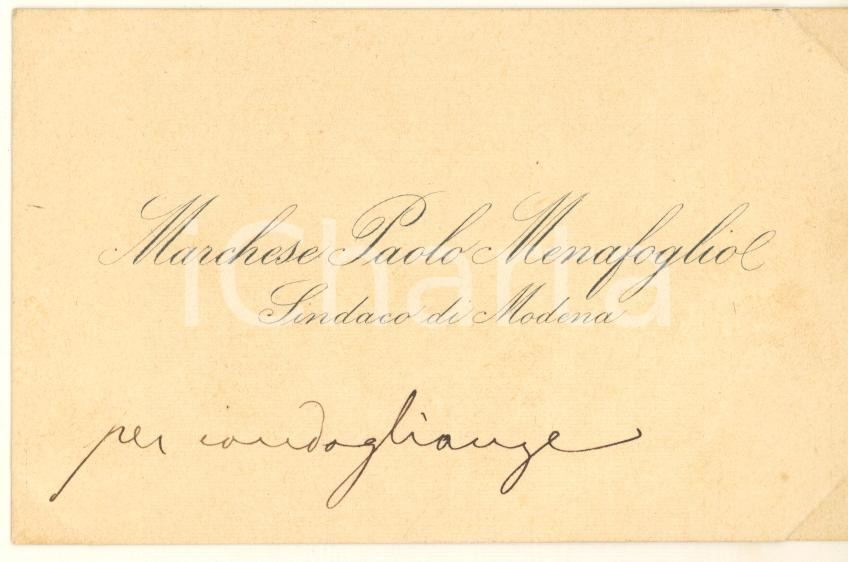 Marchese Paolo Menafoglio
Sindaco di Modena
iCharta
per condoglianze